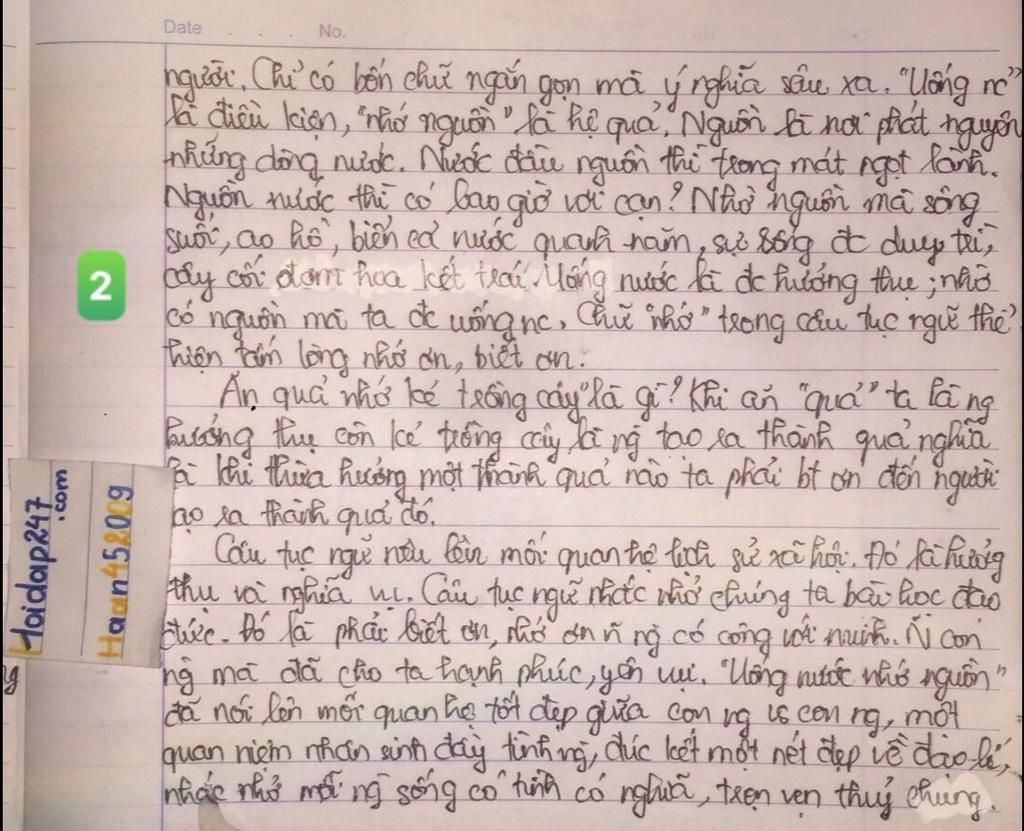 Date . . . No.
người. Chỉ có bốn chữ ngắn gọn mà ý nghĩa sâu xa. "Uống nc"
là điều kiện, "nhớ nguồn" là hệ quả. Nguồn là nơi phát nguyên
những dòng nước. Nước đầu nguồn thì trong mát ngọt lành.
Nguồn nước thì có bao giờ vơi cạn? Nhờ nguồn mà sông
suối, ao hồ, biển cả nước quanh năm, sự sống đc duy trì,
cây cối đơm hoa kết trái. Uống nước là đc hưởng thụ; nhờ
có nguồn mà ta đc uống nc. Chữ "nhớ" trong câu tục ngữ thể
hiện tấm lòng nhớ ơn, biết ơn.
Ăn quả nhớ kẻ trồng cây" là gì? Khi ăn "quả" ta là ng
hưởng thụ còn kẻ trồng cây là ng tạo ra thành quả, nghĩa
là khi thừa hưởng một thành quả nào ta phải bt ơn đến người
tạo ra thành quả đó.
Câu tục ngữ nêu lên mối quan hệ lịch sử xã hội. Đó là hưởng
thụ và nghĩa vụ. Câu tục ngữ nhắc nhở chúng ta bài học đạo
đức. Đó là phải biết ơn, nhớ ơn ñ ng có công với mình. Ñ con
ng mà đã cho ta hạnh phúc, yên vui. "Uống nước nhớ nguồn"
đã nói lên mối quan hệ tốt đẹp giữa con ng vs con ng, một
quan niệm nhân sinh đầy tình ng, đúc kết một nét đẹp về đạo lí,
nhắc nhở mỗi ng sống có tình có nghĩa, trọn vẹn thuỷ chung.
2
Hoidap247
.com
Haan452009